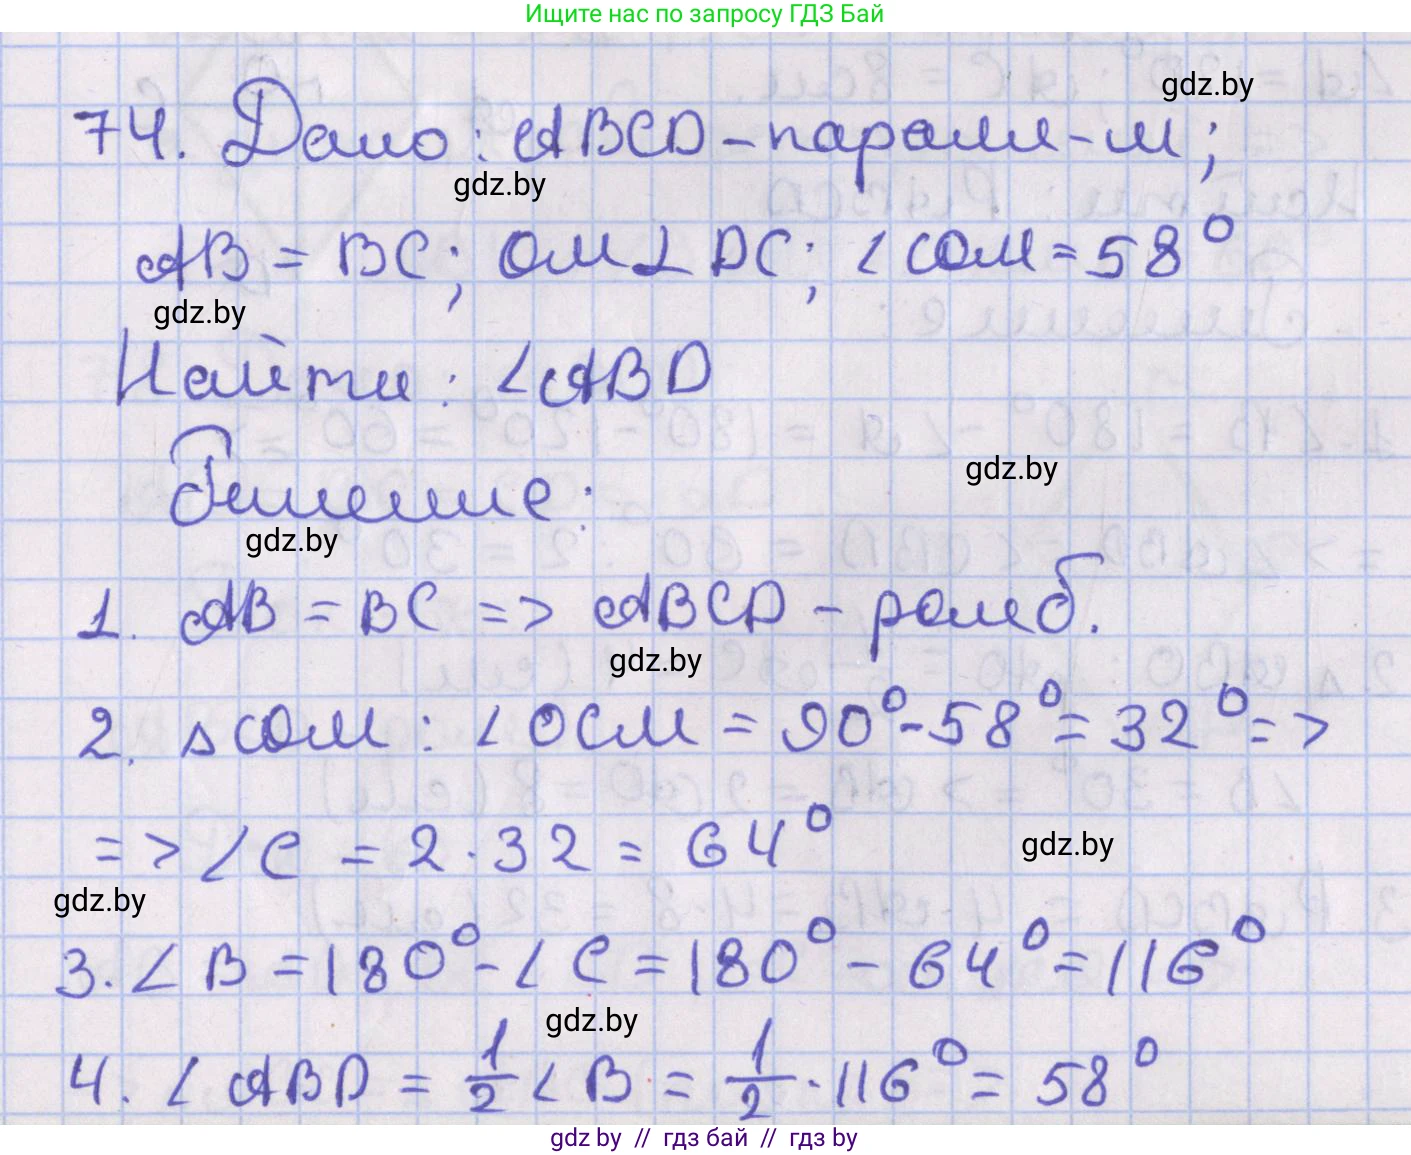 Ищите нас по запросу ГДЗ Бай
gdz.by
74. Дано: ABCD - паралл-м;
gdz.by
AB = BC; OM ⊥ DC; ∠COM = 58°
gdz.by
Найти: ∠ABD
gdz.by
Решение:
gdz.by
1. AB = BC => ABCD - ромб.
gdz.by
2. △COM: ∠OCM = 90° - 58° = 32° =>
=> ∠C = 2 · 32 = 64°
gdz.by
gdz.by
3. ∠B = 180° - ∠C = 180° - 64° = 116°
gdz.by
4. ∠ABD = 1/2 ∠B = 1/2 · 116° = 58°
gdz.by // гдз бай // гдз by